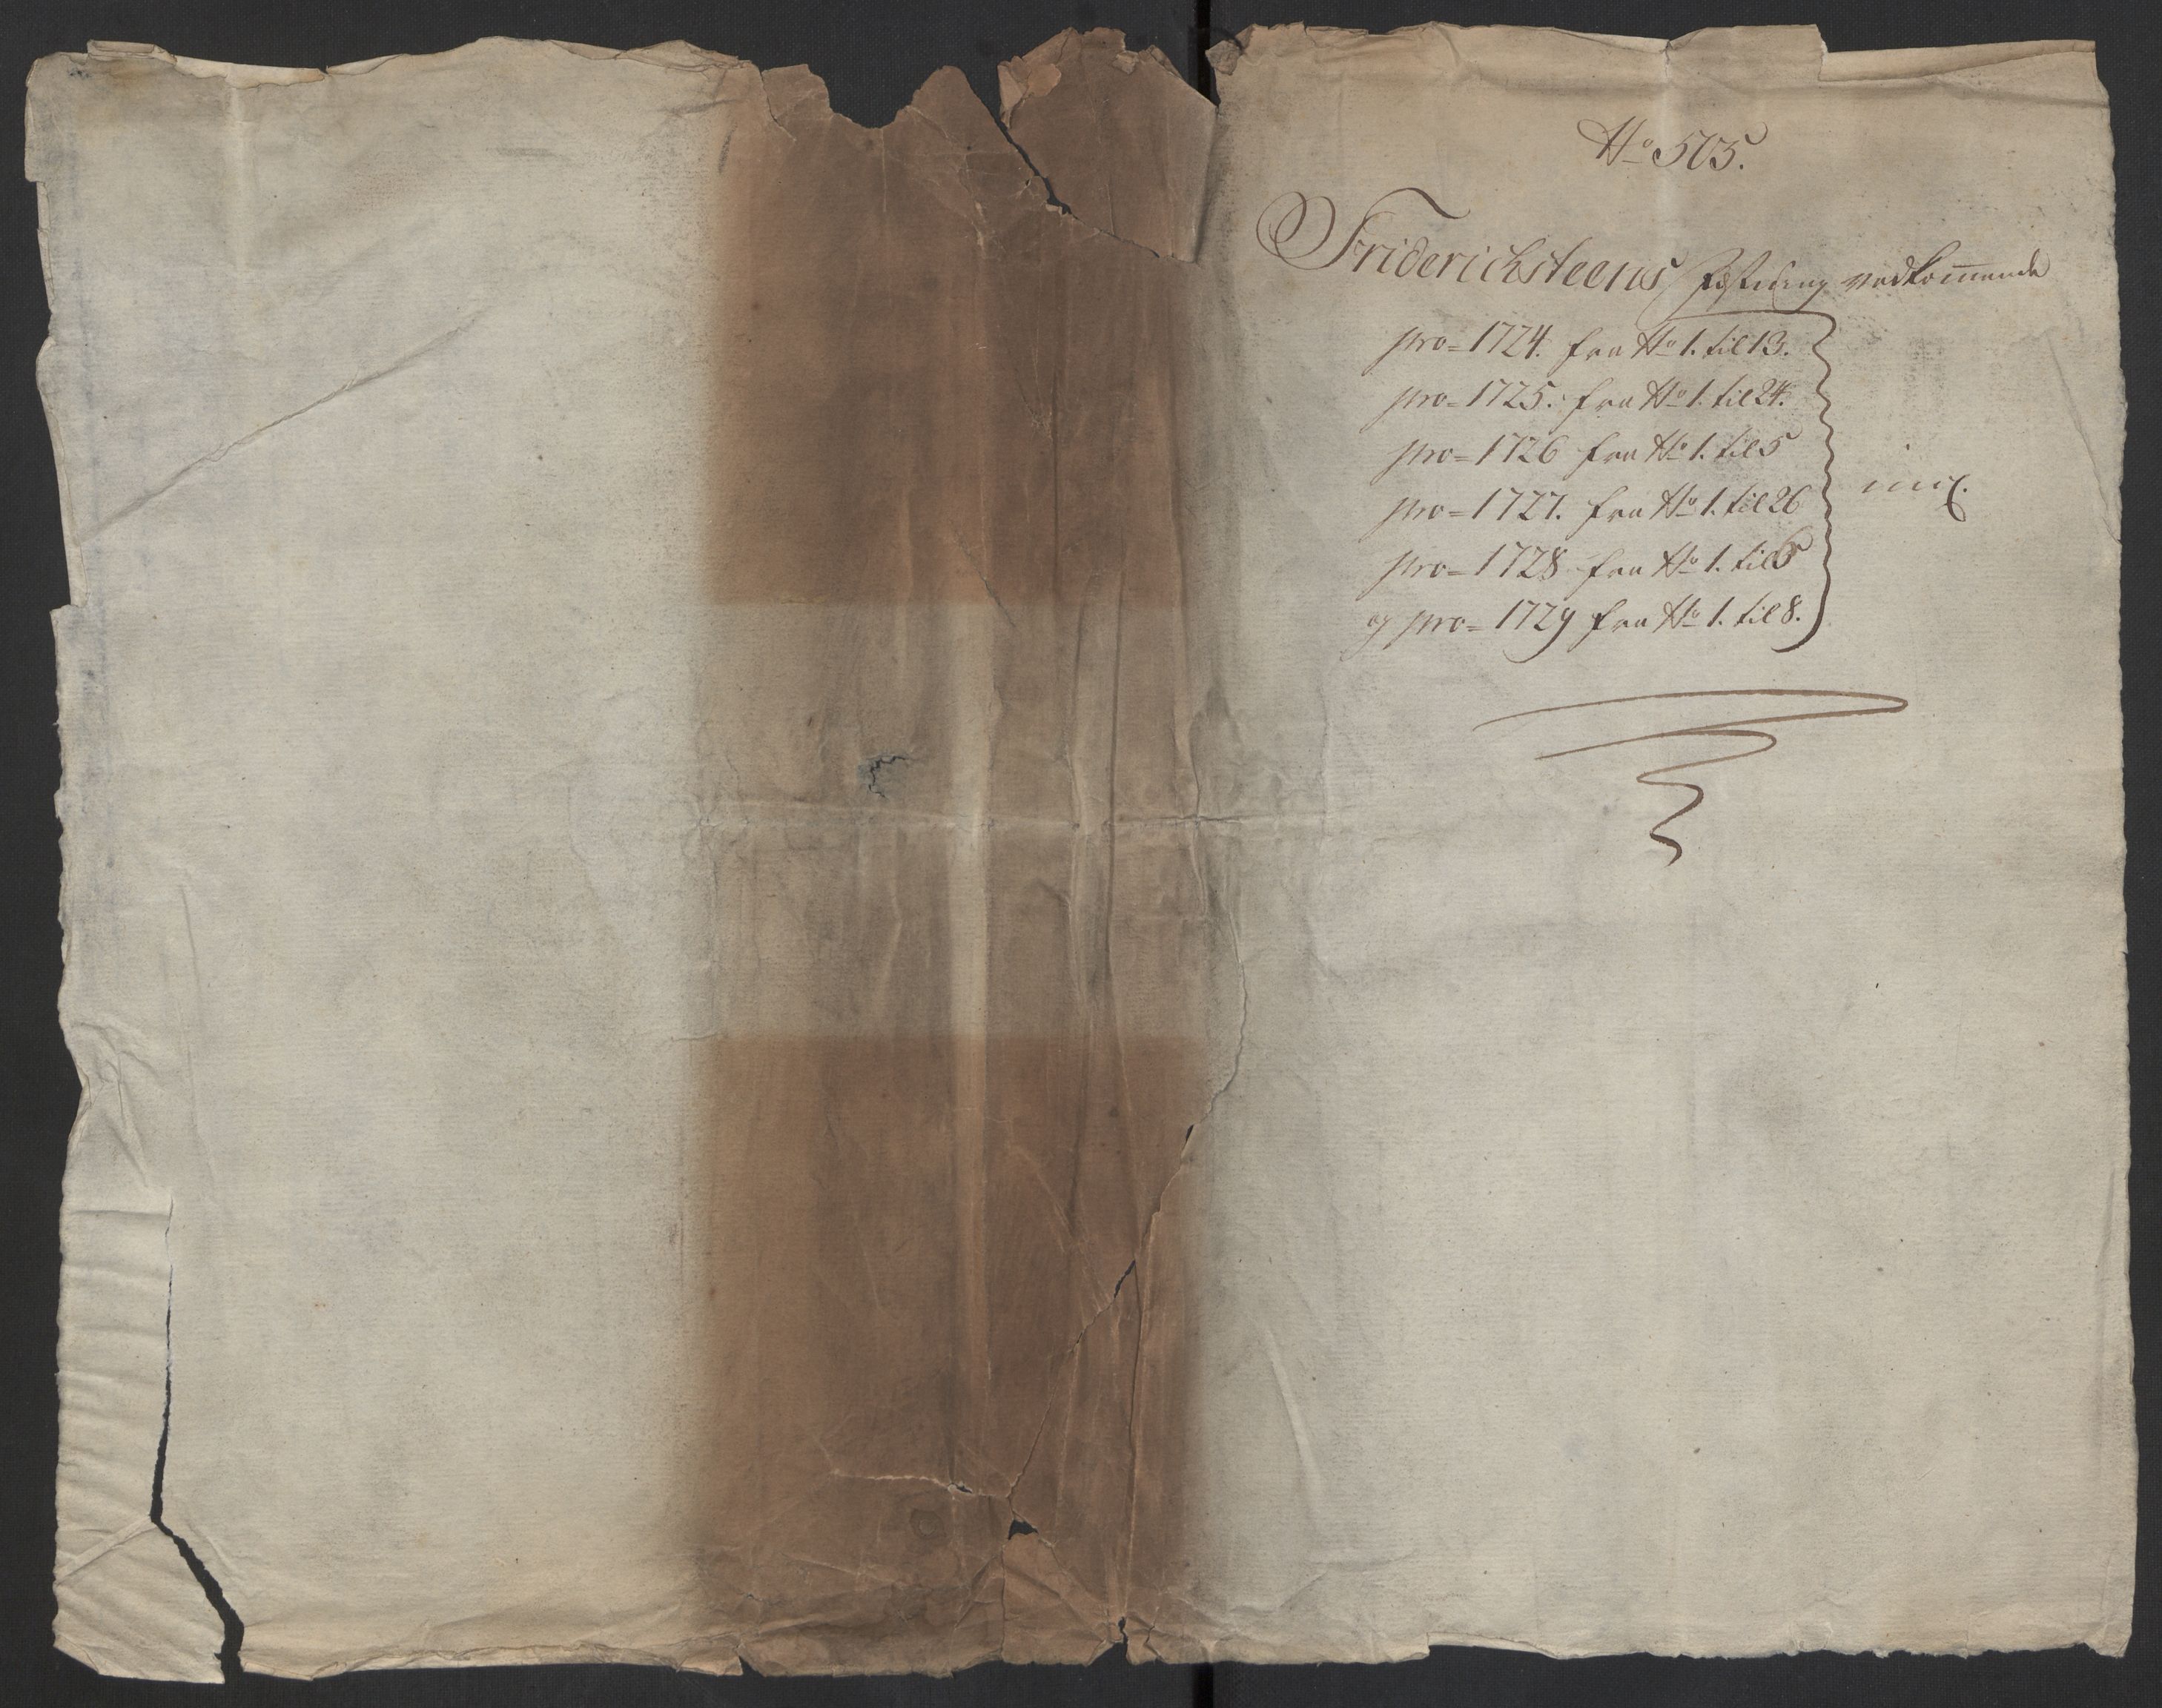 No 505.
Friderichsteens Festning vedkommende
pro= 1724. fra No 1. til 13.
pro= 1725. fra No 1. til 24.
pro= 1726 fra No 1. til 5
pro= 1727. fra No 1. til 26
pro= 1728 fra No 1. til 6
og pro= 1729 fra No 1. til 8.